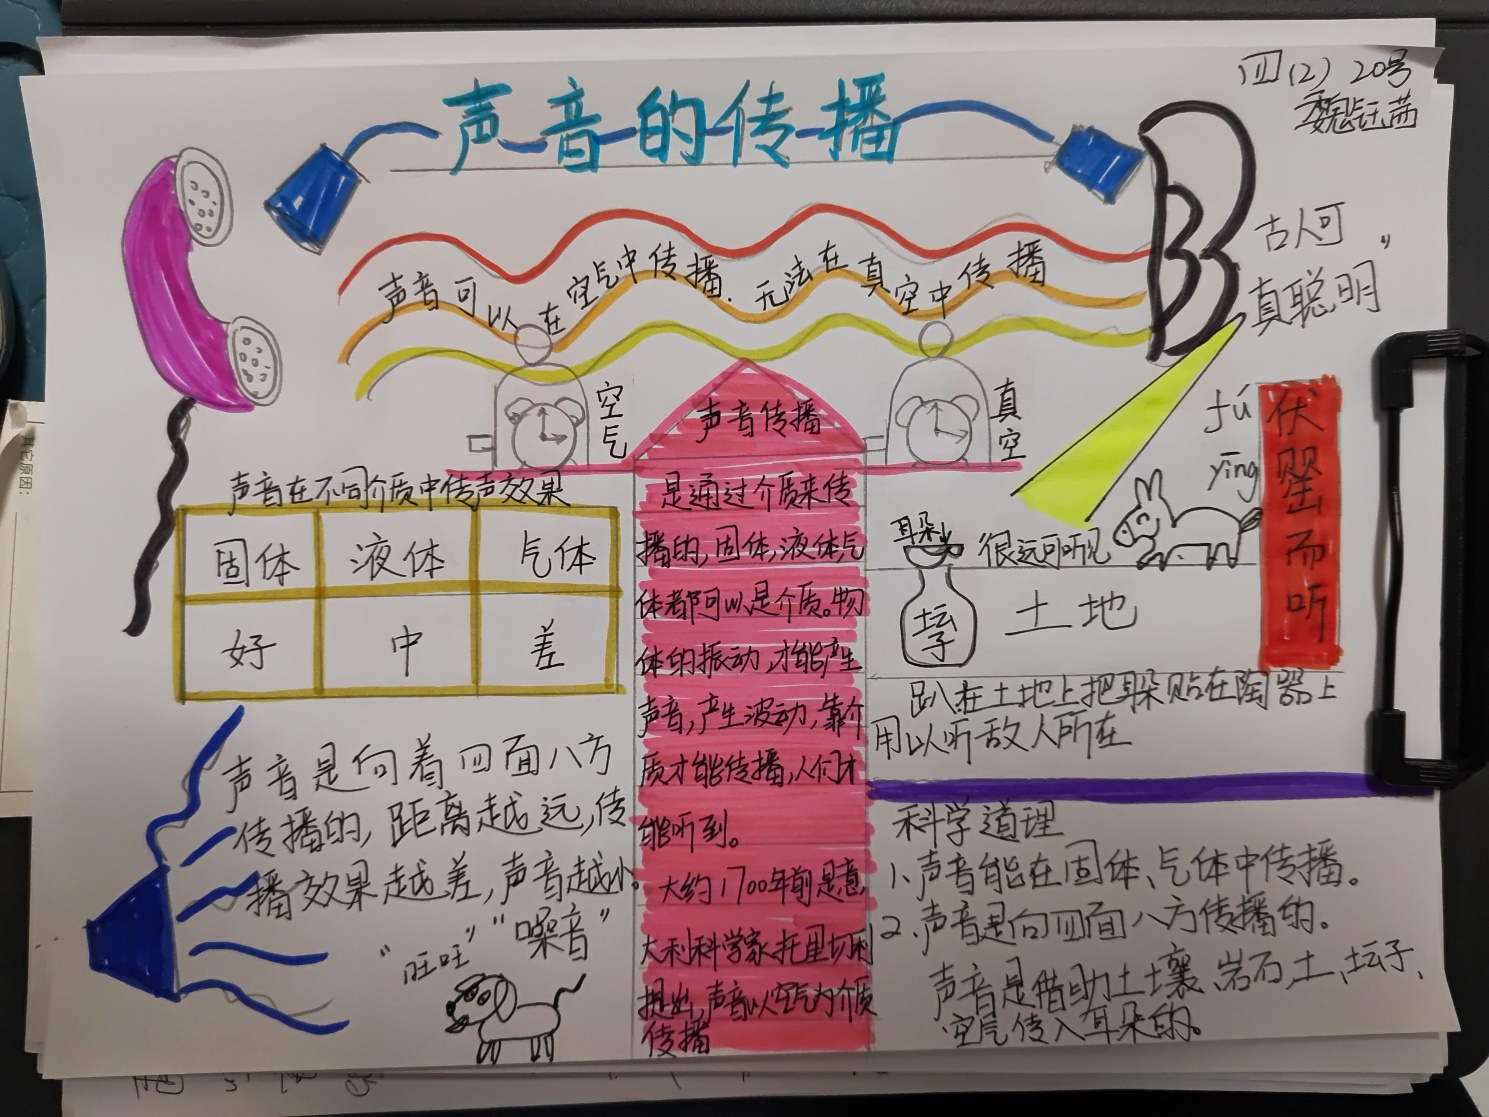 四(2) 20号
魏钰茜
声音的传播
声音可以在空气中传播.无法在真空中传播
古人可
真聪明"
空气
真空
声音传播
是通过介质来传
播的,固体,液体气
体都可以是介质。物
体的振动,才能产生
声音,产生波动,靠介
质才能传播,人们才
能听到。
大约1700年前是意
大利科学家托里切利
提出,声音以空气为介质
传播
声音在不同介质中传声效果
固体 液体 气体
好 中 差
声音是向着四面八方
传播的,距离越远,传
播效果越差,声音越小。
"旺旺" "噪音"
fú
yīng
伏罂而听
耳朵
很远可听见
坛子
土地
趴在土地上把耳朵贴在陶器上
用以听敌人所在
科学道理
1.声音能在固体、气体中传播。
2.声音是向四面八方传播的。
声音是借助土壤、岩石,土、坛子、
空气传入耳朵的。
其它原因: